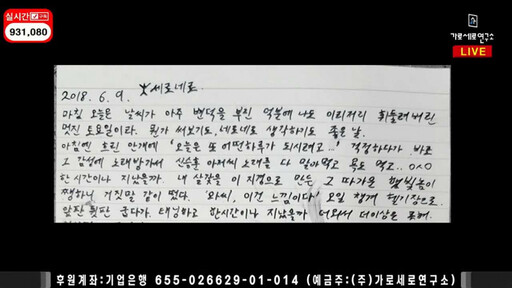 실시간
931,080
가로세로연구소
LIVE
2018. 6. 9. 세로네로.
마침 오늘은 날씨가 아주 변덕을 부린 덕분에 나도 이리저리 휘둘려버린
멋진 토요일이라. 뭔가 써보기도, 네로네로 생각하기도 좋은 날.
아침엔 흐린 안개에 '오늘은 또 어떤하루가 되시려고...' 걱정하다가 바로
그 감성에 노래방가서 신승훈 아저씨 노래를 다 잊어먹고 욕도 먹고..
한시간이나 지났을까. 내 살갗을 이 지경으로 만든 그 따가운 햇빛놈이
쨍하니 거짓말 같이 떴다. '와씨, 이건 느낌이다' 오일 챙겨 헬기장으로.
앞판 뒷판 굽다가. 태닝하고 한시간이나 지났을까 더워서 더이상은 못해.
후원계좌:기업은행 655-026629-01-014 (예금주:(주)가로세로연구소)